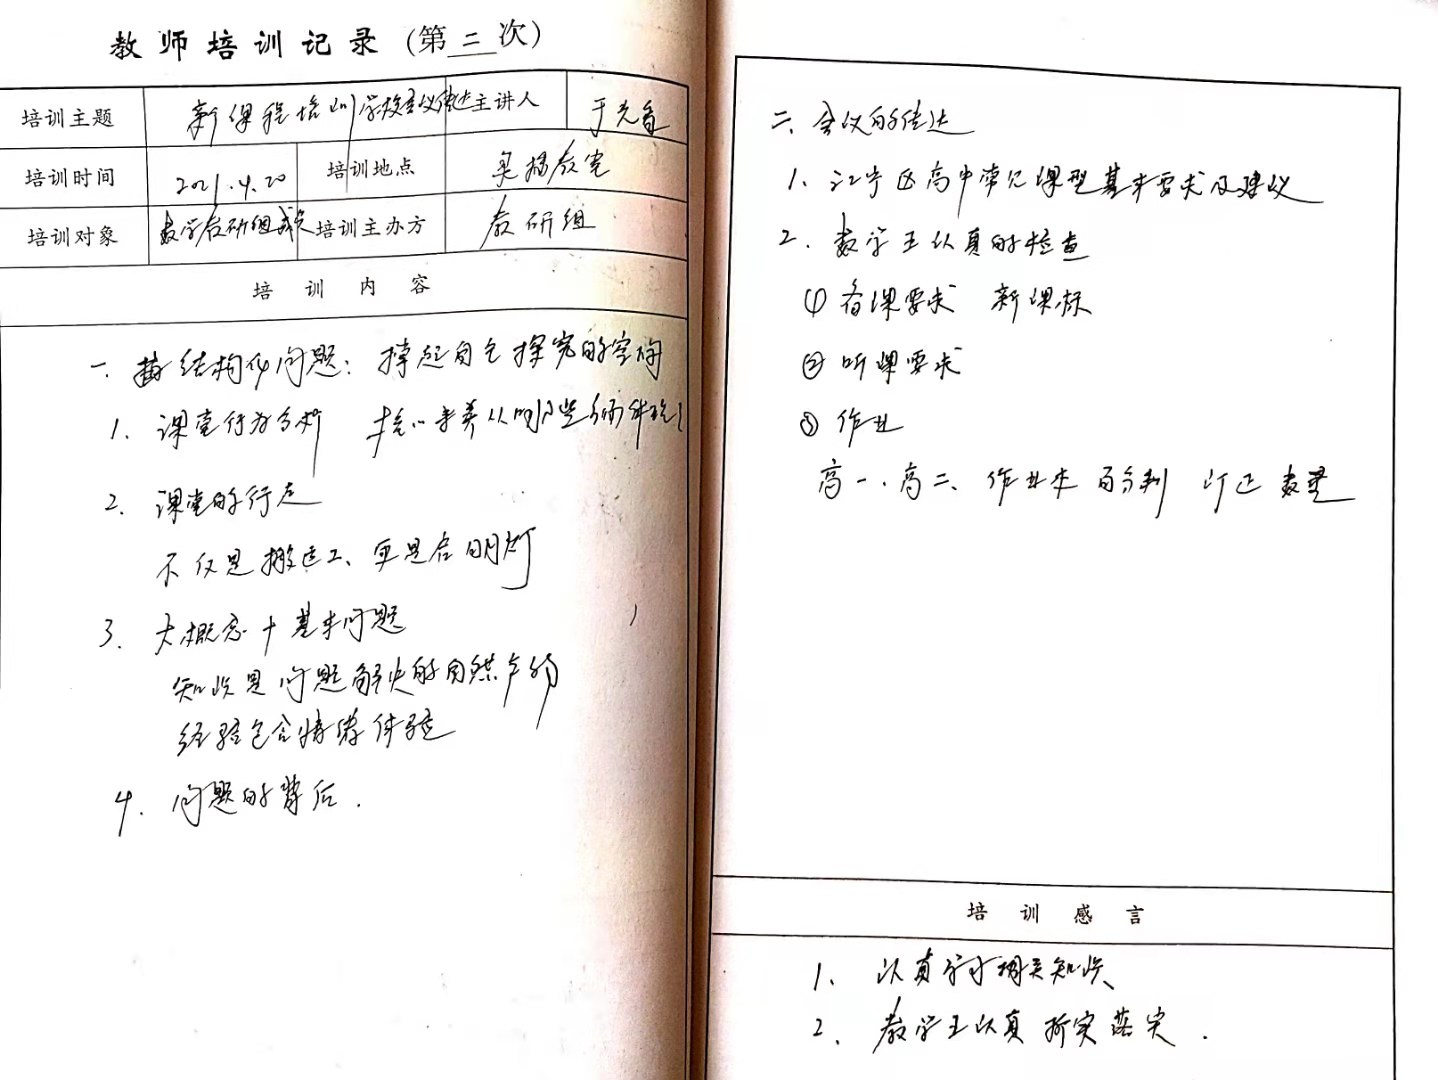 教师培训记录(第二次)
培训主题 新课程培训学校会议传达 主讲人 于
培训时间 2021.4.20 培训地点 录播教室
培训对象 数学教研组成员 培训主办方 教研组
培训内容
一. 结构化问题: 撑起自己探究的空间
1. 课堂行为分析
2. 课堂的行走
不仅是搬运工、更是启明灯
3. 大概念+基本问题
知识是问题解决的自然产物
经验包含情绪体验
4. 问题的背后.
二、会议的传达
1. 江宁区高中常见课型基本要求及建议
2. 教学五认真的检查
① 备课要求 新课标
② 听课要求
③ 作业
高一、高二、作业本 百分制 订正 数量
培训感言
1、认真学习相关知识
2、教学五认真 抓实 落实.